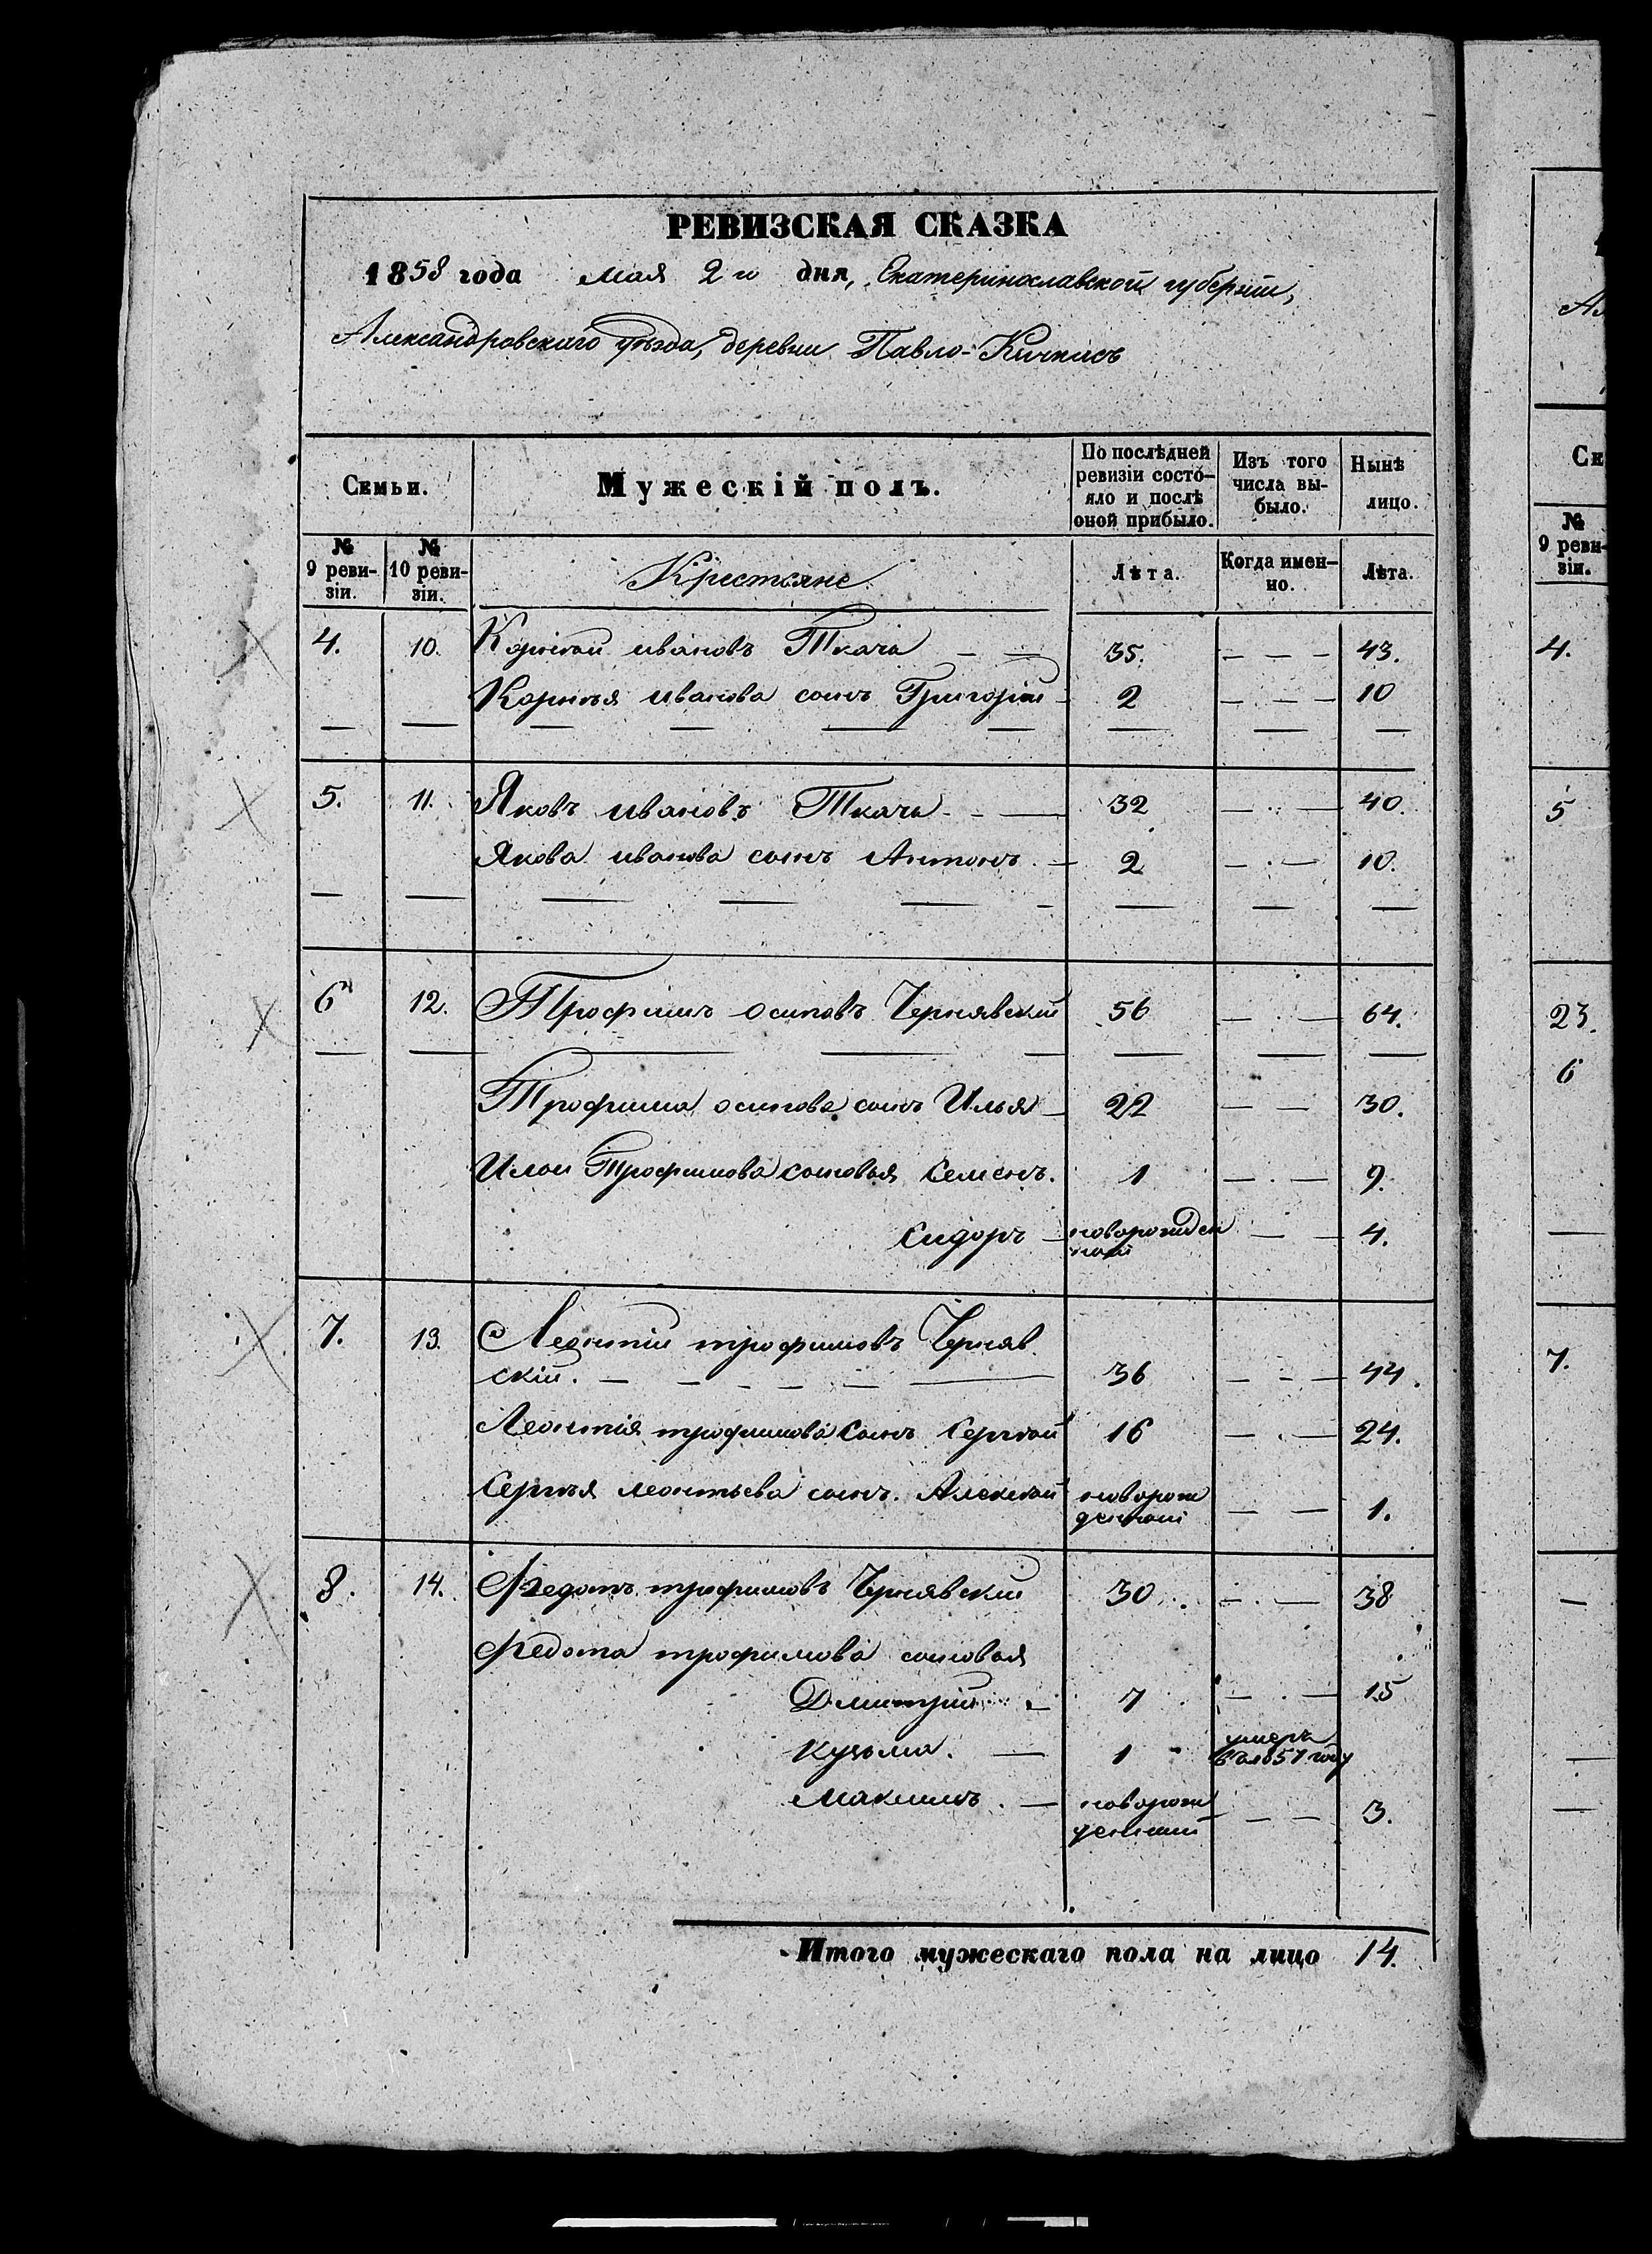 РЕВИЗСКАЯ СКАЗКА
1858 года мая 2го дня, Екатеринославской губерніи,
Александровскаго уѣзда, деревни Павло-Кичкасъ
Семьи.
Мужескій полъ.
По послѣдней ревизіи состояло и послѣ оной прибыло.
Изъ того числа выбыло.
Нынѣ лицо.
№ 9 ревизіи.
№ 10 ревизіи.
Крестьяне
Лѣта.
Когда именно.
Лѣта.
4. 10. Корнѣй ивановъ Ткачъ 35. 43.
Корнѣя иванова сынъ Григорій 2 10
5. 11. Яковъ ивановъ Ткачъ 32 40.
Якова иванова сынъ Антонъ 2 10.
6 12. Трофимъ осиповъ Чернявскій 56 64.
Трофима осипова сынъ Илья 22 30.
Ильи Трофимова сыновья Семенъ. 1 9.
Сидоръ новорожден 4.
ный
7. 13. Леонтій трофимовъ Черняв
скій. 36 44.
Леонтія трофимова Сынъ Сергѣй 16 24.
Сергѣя леонтьева сынъ. Алексѣй новорож 1.
денный
8. 14. Федотъ трофимовъ Чернявскій 30 38
Федота трофимова сыновья
Дмитрій 7 15
Кузьма. 1 умеръ
въ 1851 году
Максимъ. новорож 3.
денный
Итого мужескаго пола на лицо 14.
Се
№ 9 ревизіи.
4.
5
23.
6
7.